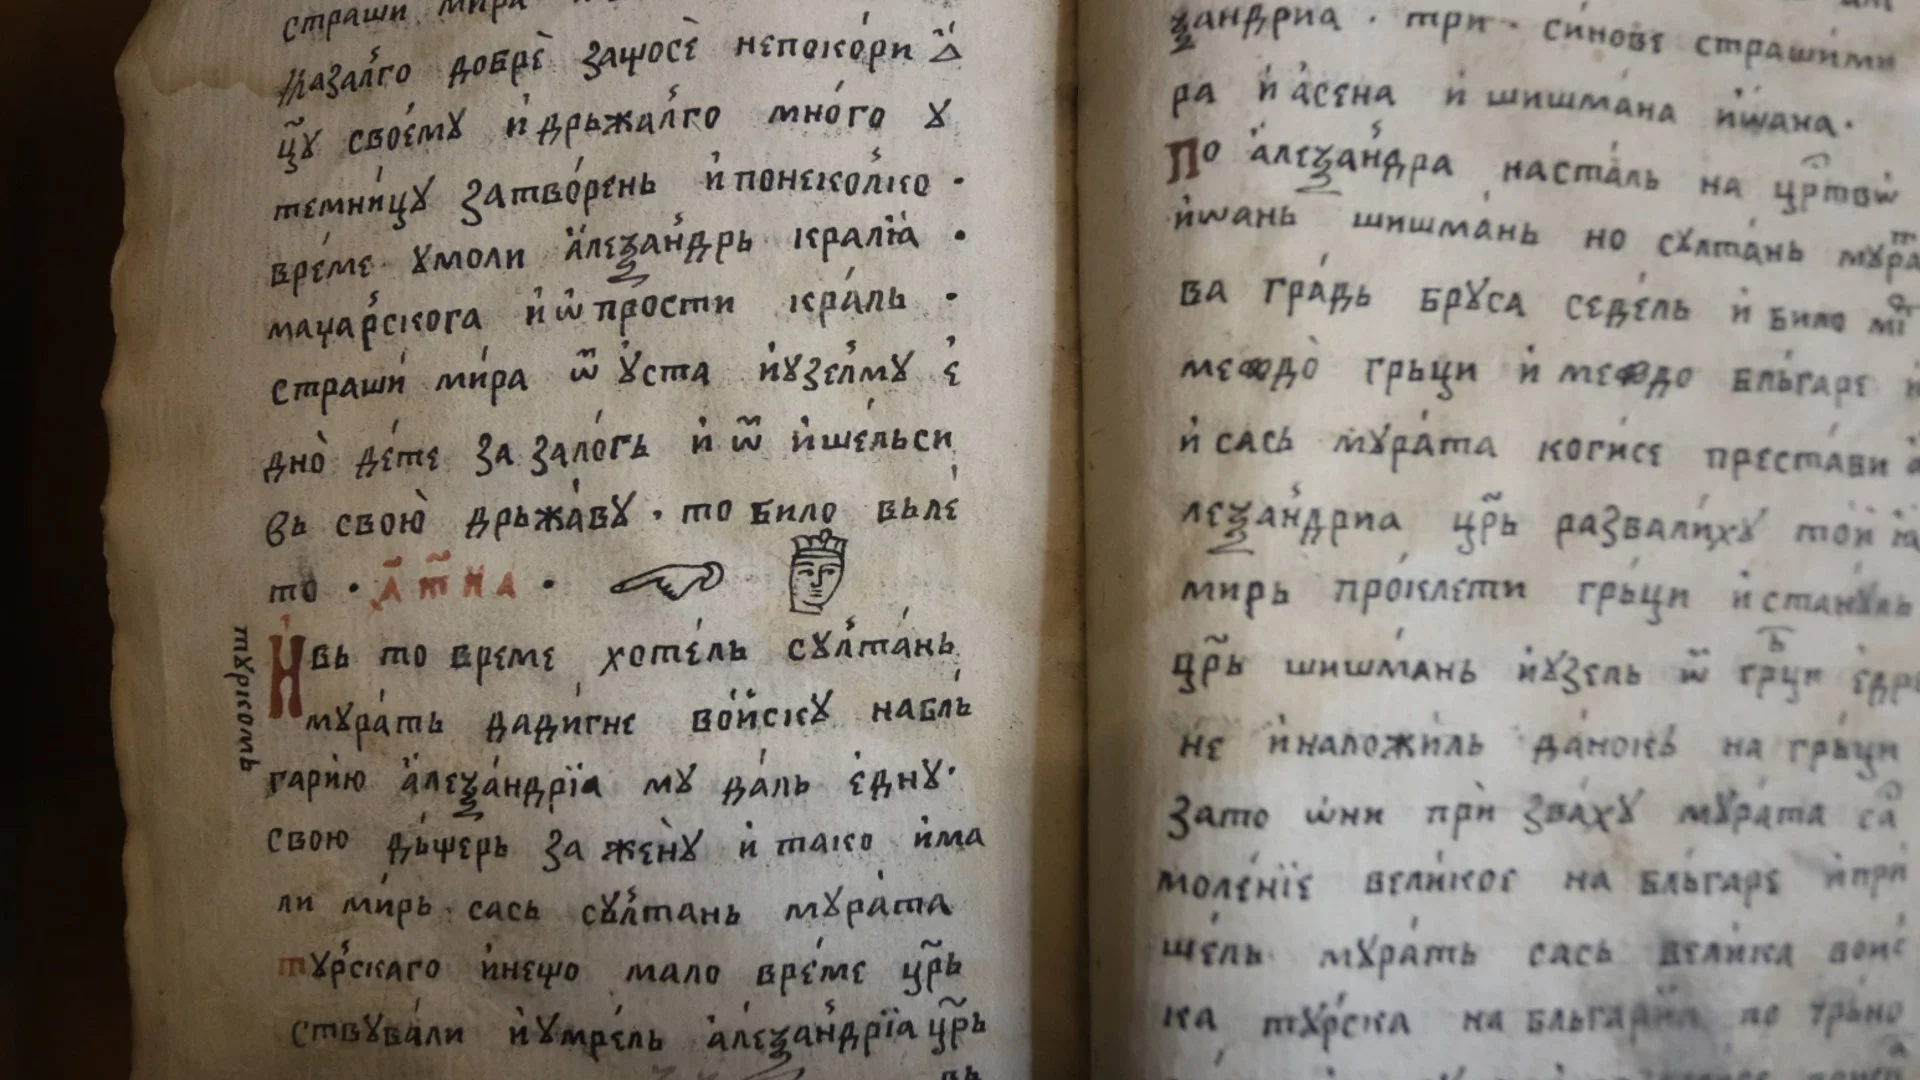 страши мира
казалго добрѐ защосѐ непокори
цⷬ҃ꙋ своемꙋ и дрьжалго много ꙋ
темницꙋ затворень и понеколко ·
време ꙋмоли алеѯандрь кралїа ·
маџарскога и ѿпрости краль ·
страши мира ѿ ꙋста и ꙋзелмꙋ е
дно̀ дете за залогь и ѿишельси
вь свою̀ дрьжавꙋ · то било вьле
то · ҂а҃т҃на ·
И вь то време хотель сꙋлтань
мꙋрать дадигне воискꙋ набль
гарию алеѯандрїа мꙋ даль еднꙋ·
свою дьщерь за женꙋ̀ и тако има
ли мирь· сась сꙋлтань мꙋрата
тꙋрскаго инещо мало време цр҃ь
ствꙋвали и ꙋмрель алеѯандрїа цр҃ь
вь
тꙋркомь
ѯандриа · три · синове страшими
ра и асена и шишмана иѡана·
По алеѯандра насталь на цр҃твѡ
иѡань шишмань но сꙋлтань мꙋраⷮ
ва градь брꙋса седель и било миⷬ
меѫдо̀ грьци и меѫдо бльгаре и
и сась мꙋрата когисе престави а
леѯандриа цр҃ь развалихꙋ той
мирь проклети грьци и станꙋль
цр҃ь шишмань и ꙋзель ѿ грⸯци едре
не и наложиль данокь на грьци
зато ѡни призвахꙋ мꙋрата са
моленїе великое на бльгаре и при
шель мꙋрать сась велика вонс
ка тꙋрска на бльгариа по трьно